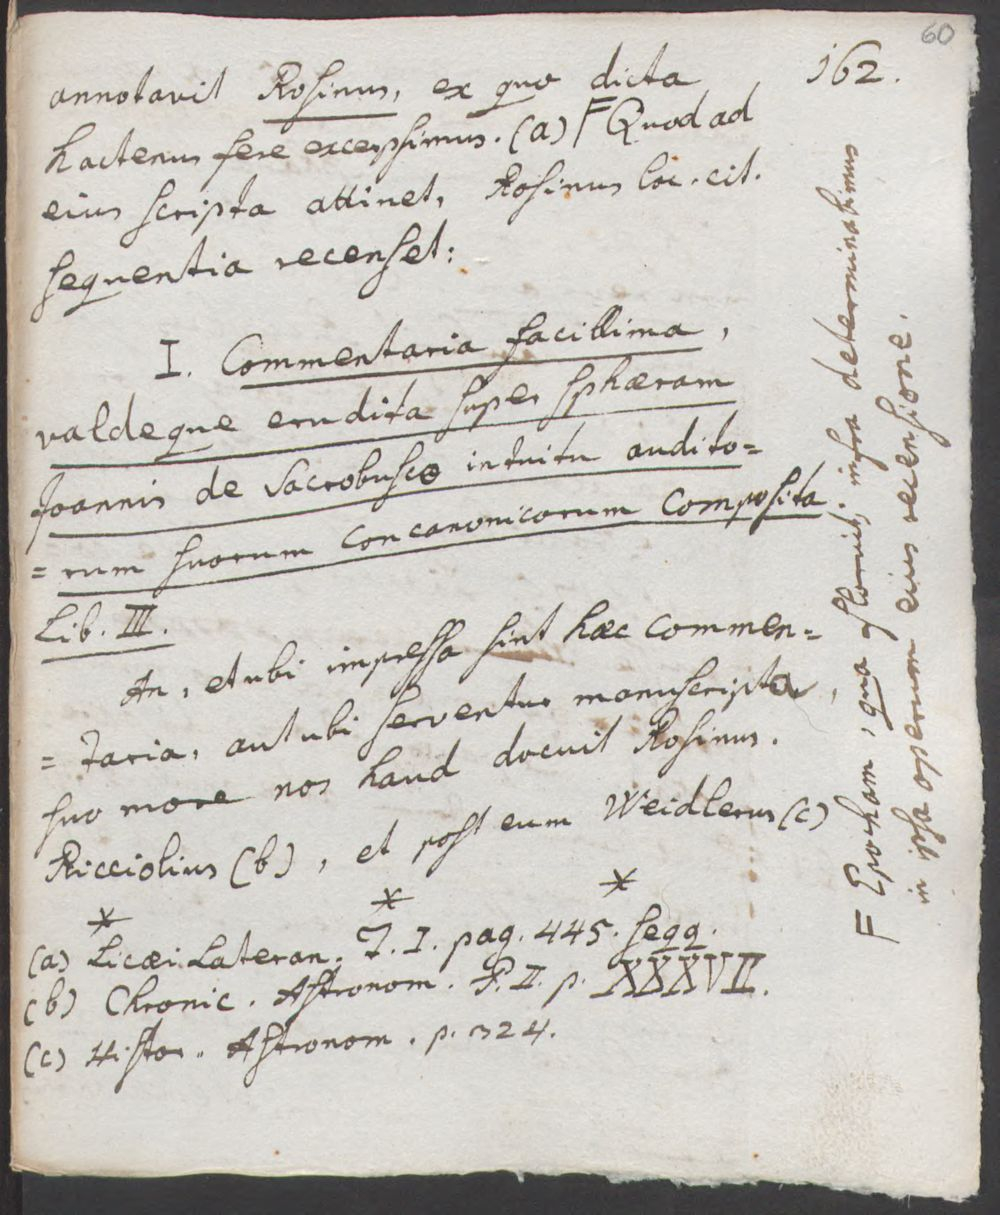 60
162.
annotavit Rosinus, ex quo dicta
hactenus fere excerpsimus. (a) F Quod ad
eius scripta attinet, Rosinus loc. cit.
sequentia recenset:
I. Commentaria facillima,
valdeque erudita super sphæram
Joannis de Sacrobusco intuitu audito=
=rum suorum concanonicorum composita
Lib. III.
An, et ubi impressa sint hæc commen=
=taria, aut ubi serventur manuscripta,
suo more nos haud docuit Rosinus.
Ricciolius (b), et post eum Weidlerus (c)
* * *
(a) Licæi Lateran. T. I. pag. 445. seqq.
(b) Chronic. Astronom. P. II. p. XXXVII.
(c) Histor. Astronom. p. 324.
F Epocham, qua floruit, infra determinabimus
in ipsa operum eius recensione.